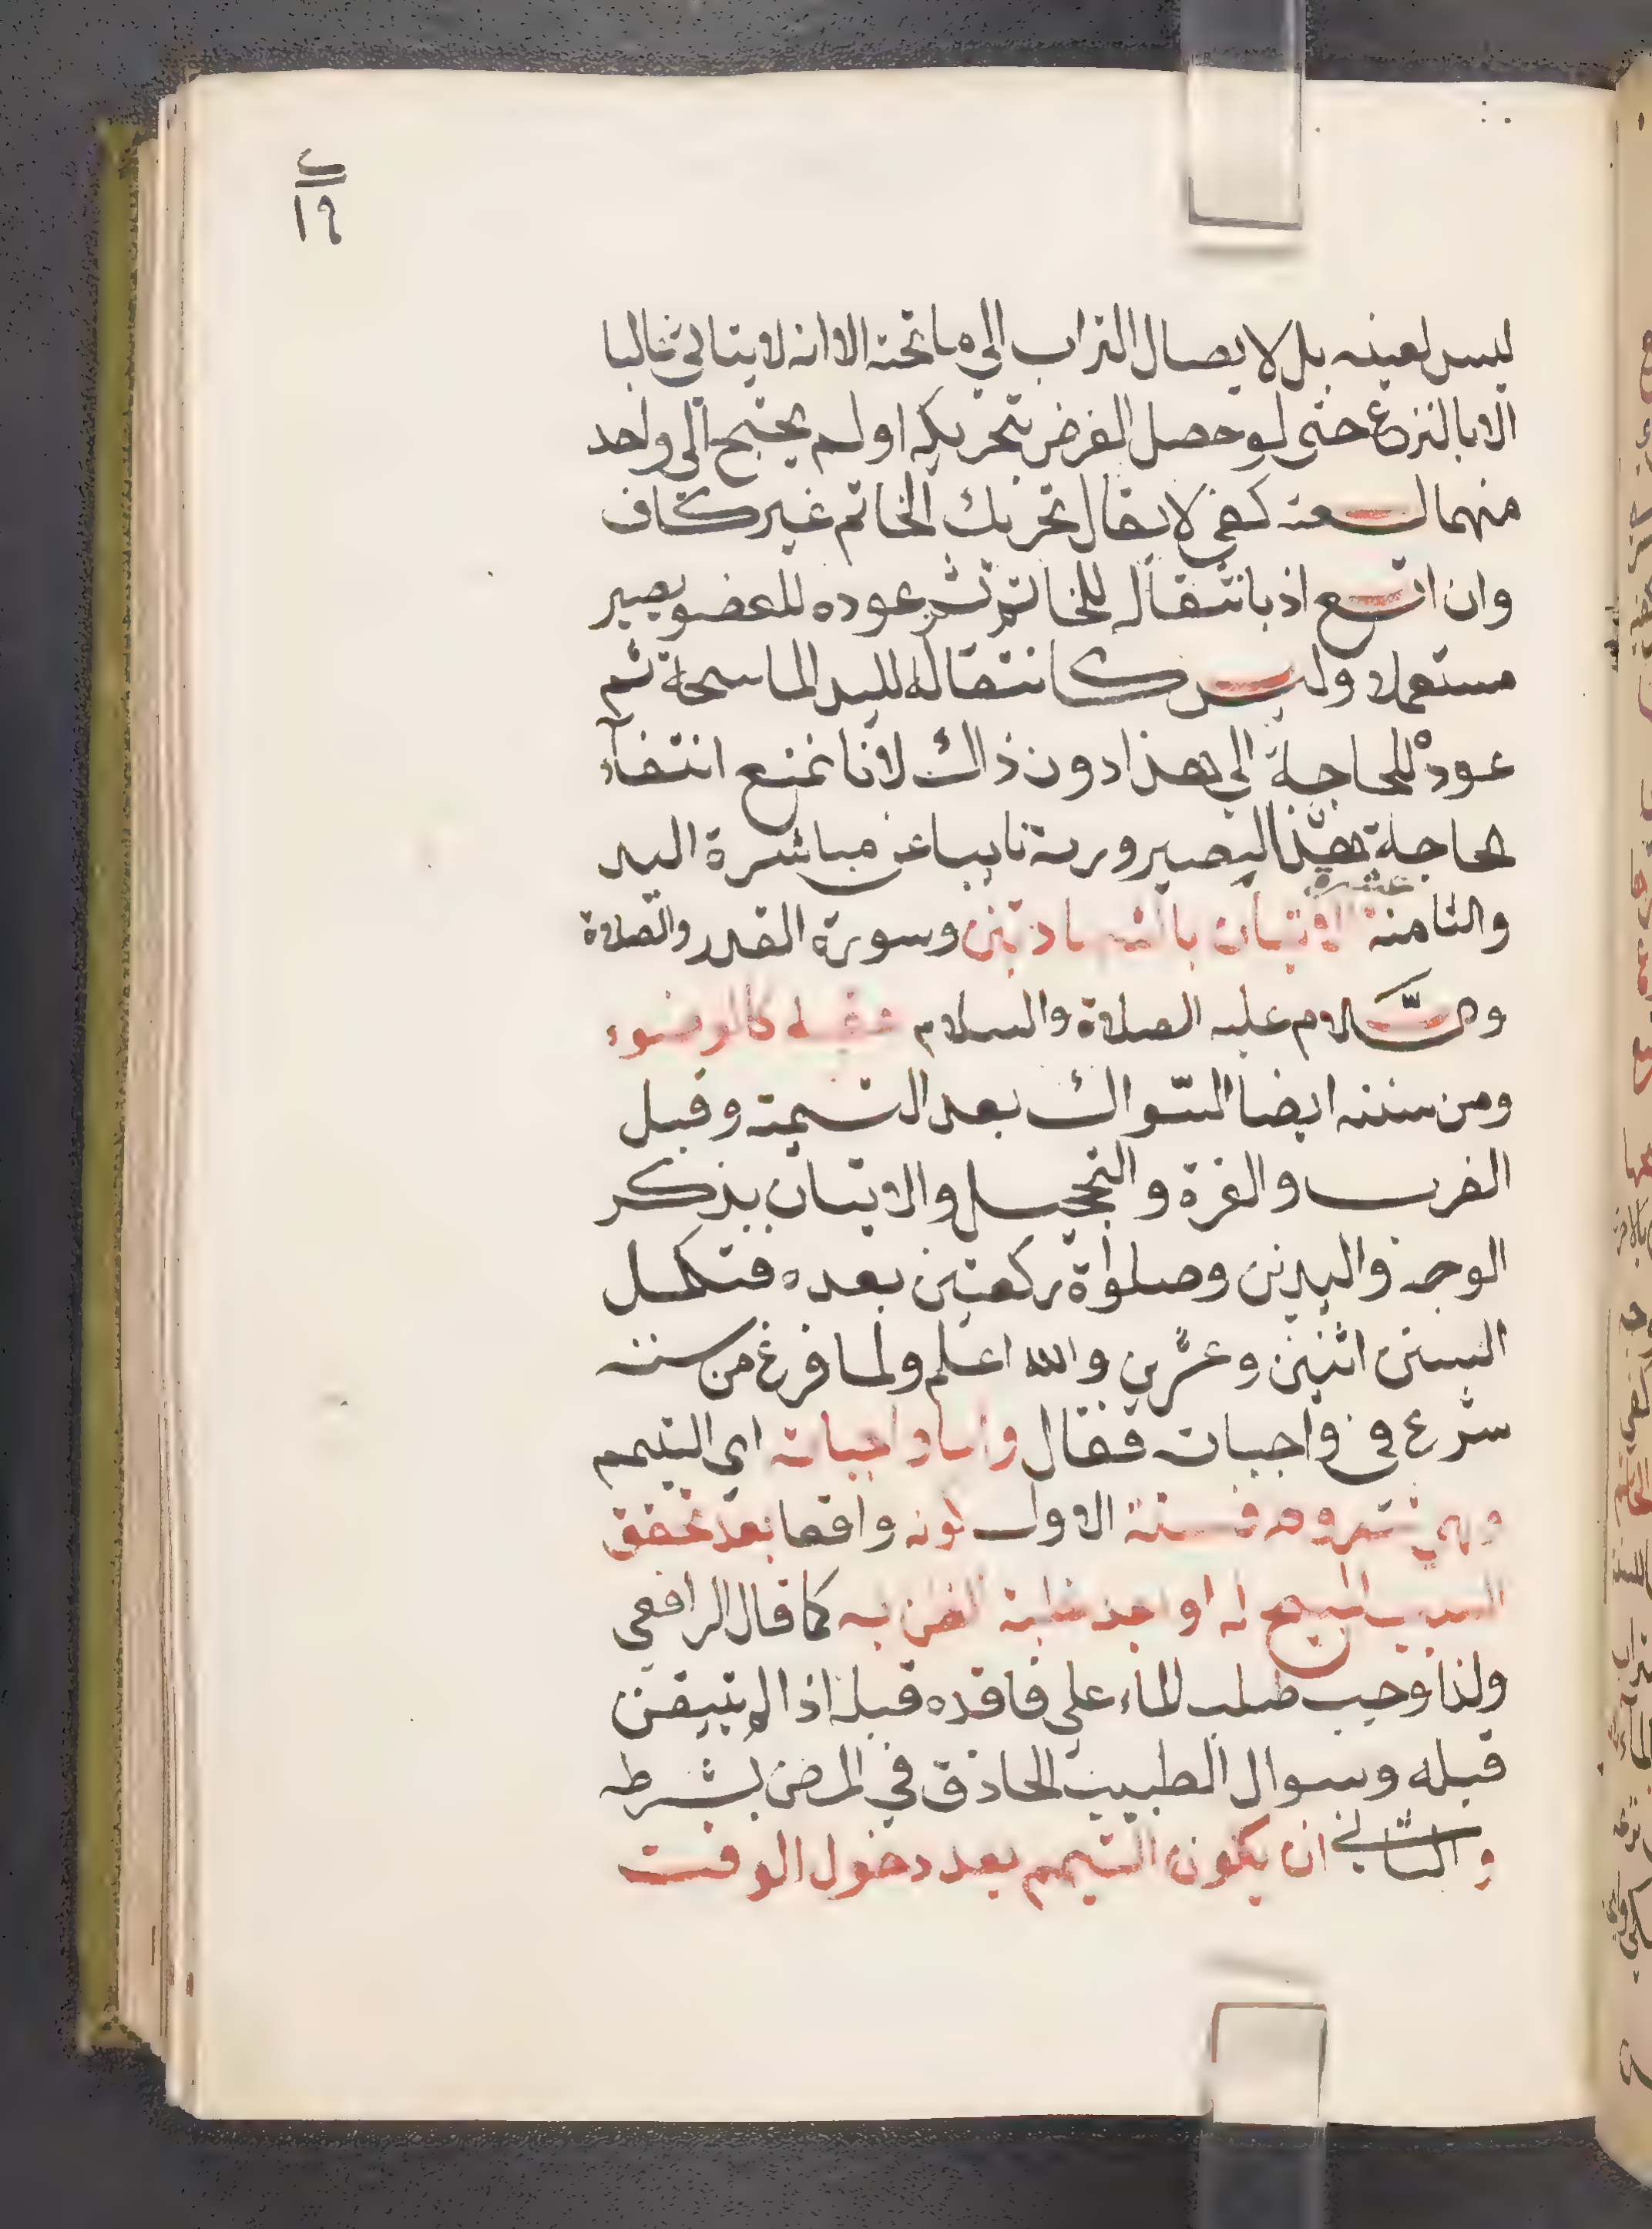 ك
١٢
ليس لعينه بل لايصال التراب الي ما تحته الا انه لا يتاتي غالبا
الا بالنزع حتي لو حصل الفرض بتحريكه او لم يحتج الي واحد
منهما لسعته كفي لا يقال تحريك الخاتم غير كاف
وان اتسع اذ بانتقاله للخاتم ثم عوده للعضو يصير
مستعملا وليس كانتقاله لليد الماسحة ثم
عوده للحاجة الي هذا دون ذاك لانا نمنع انتفاء
لحاجة هذا لصيرورته نايبا عن مباشرة اليد
والثامنة عشرة الاتيان بالشهادتين وسورة القدر والصلاة
والسّلام عليه الصلاة والسلام عقبه كالوضوء
ومن سننه ايضا السّواك بعد التسمية وقبل
الضرب والغرة والتحجيل والاتيان بذكر
الوجه واليدين وصلواة ركعتين بعده فتكمل
السنن اثنين وعشرين والله اعلم ولما فرغ من سننه
شرع في واجباته فقال واما واجباته اي التيمم
وهي شروطه فستة الاول كونه واقعا بعد تحقق
السبب المبيح له او بعد غلبة الظن به كما قال الرافعي
ولذا وجب طلب الماء علي فاقده قبله اذا لم يتيقن
قبله وسوال الطبيب الحاذق في المرض بشرطه
والثاني ان يكون التيمم بعد دخول الوقت